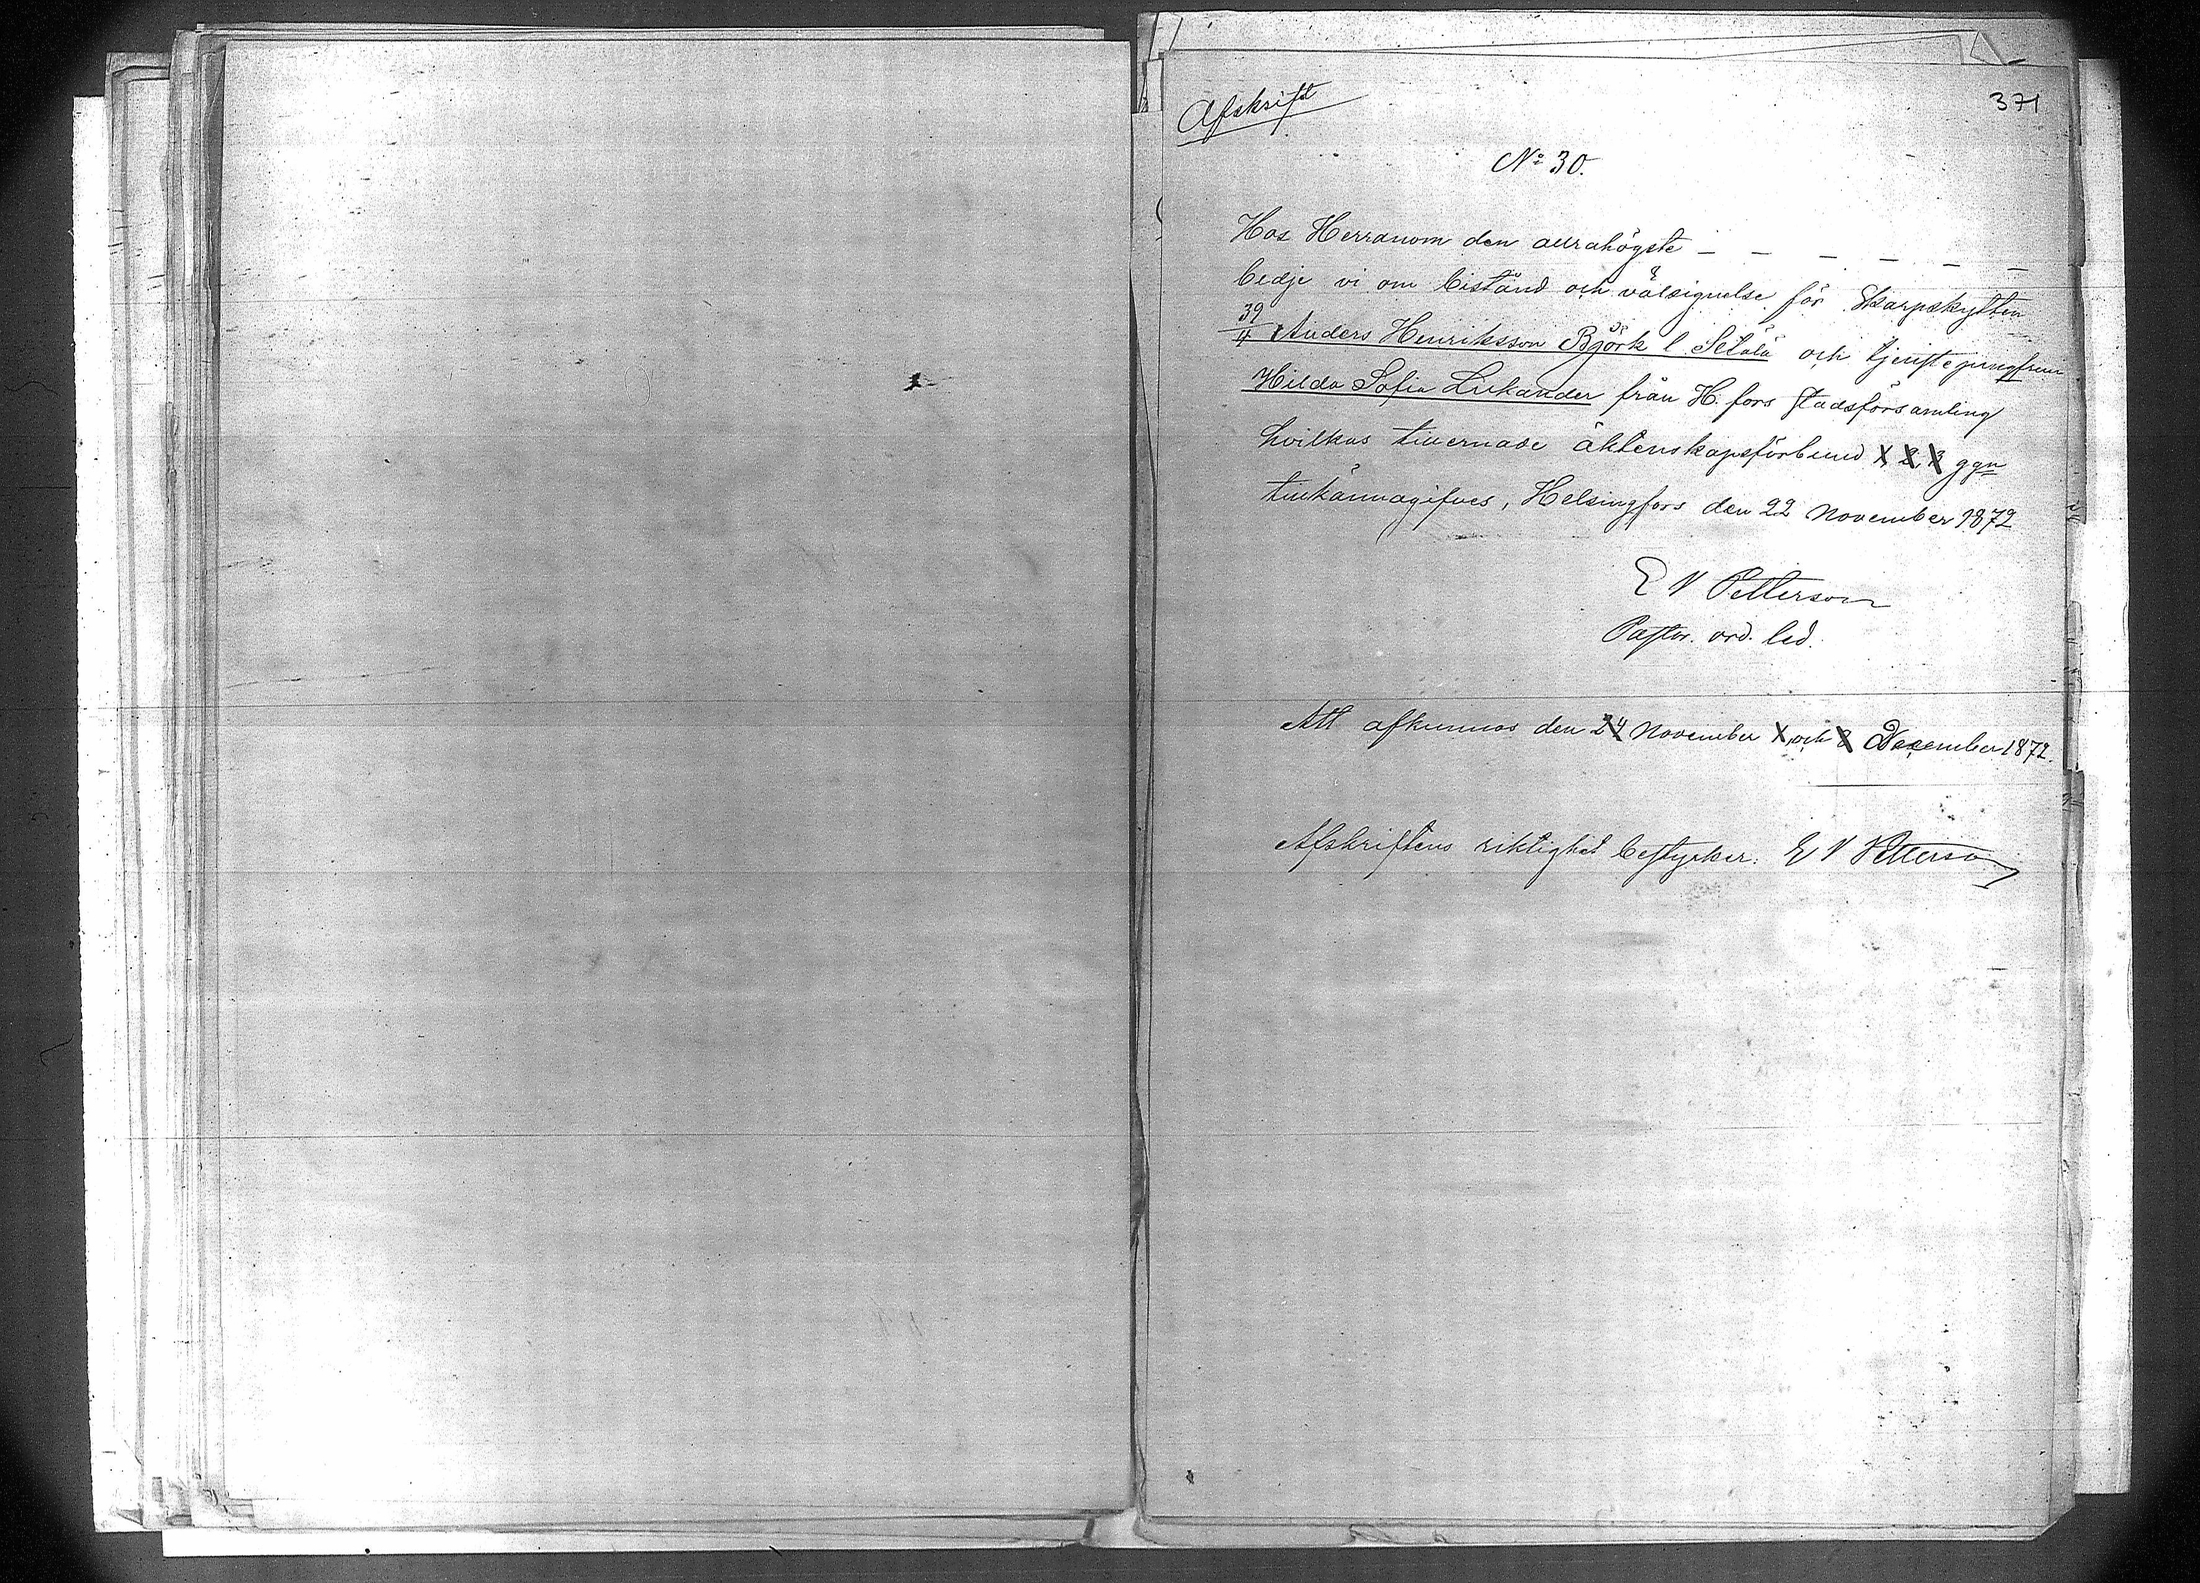 Afskrift
371
No 30.
Hos Herranom den allrahögste – – – – – –
bedje vi om bistånd och välsignelse för Skarpskytten
39/4 Anders Henriksson Björk l. Setälä och tjenstejungfrun
Hilda Sofia Lukander från H. fors stadsförsamling
hvilkas tillernade äktenskapsförbund 1, 2, 3 ggn
tillkännagifves, Helsingfors den 22 November 1872
E V Petterson
Pastor. ord. led.
Att afkunnas den 24 November 1, och 8 December 1872.
Afskriftens riktighet bestyrker: E V Petterson